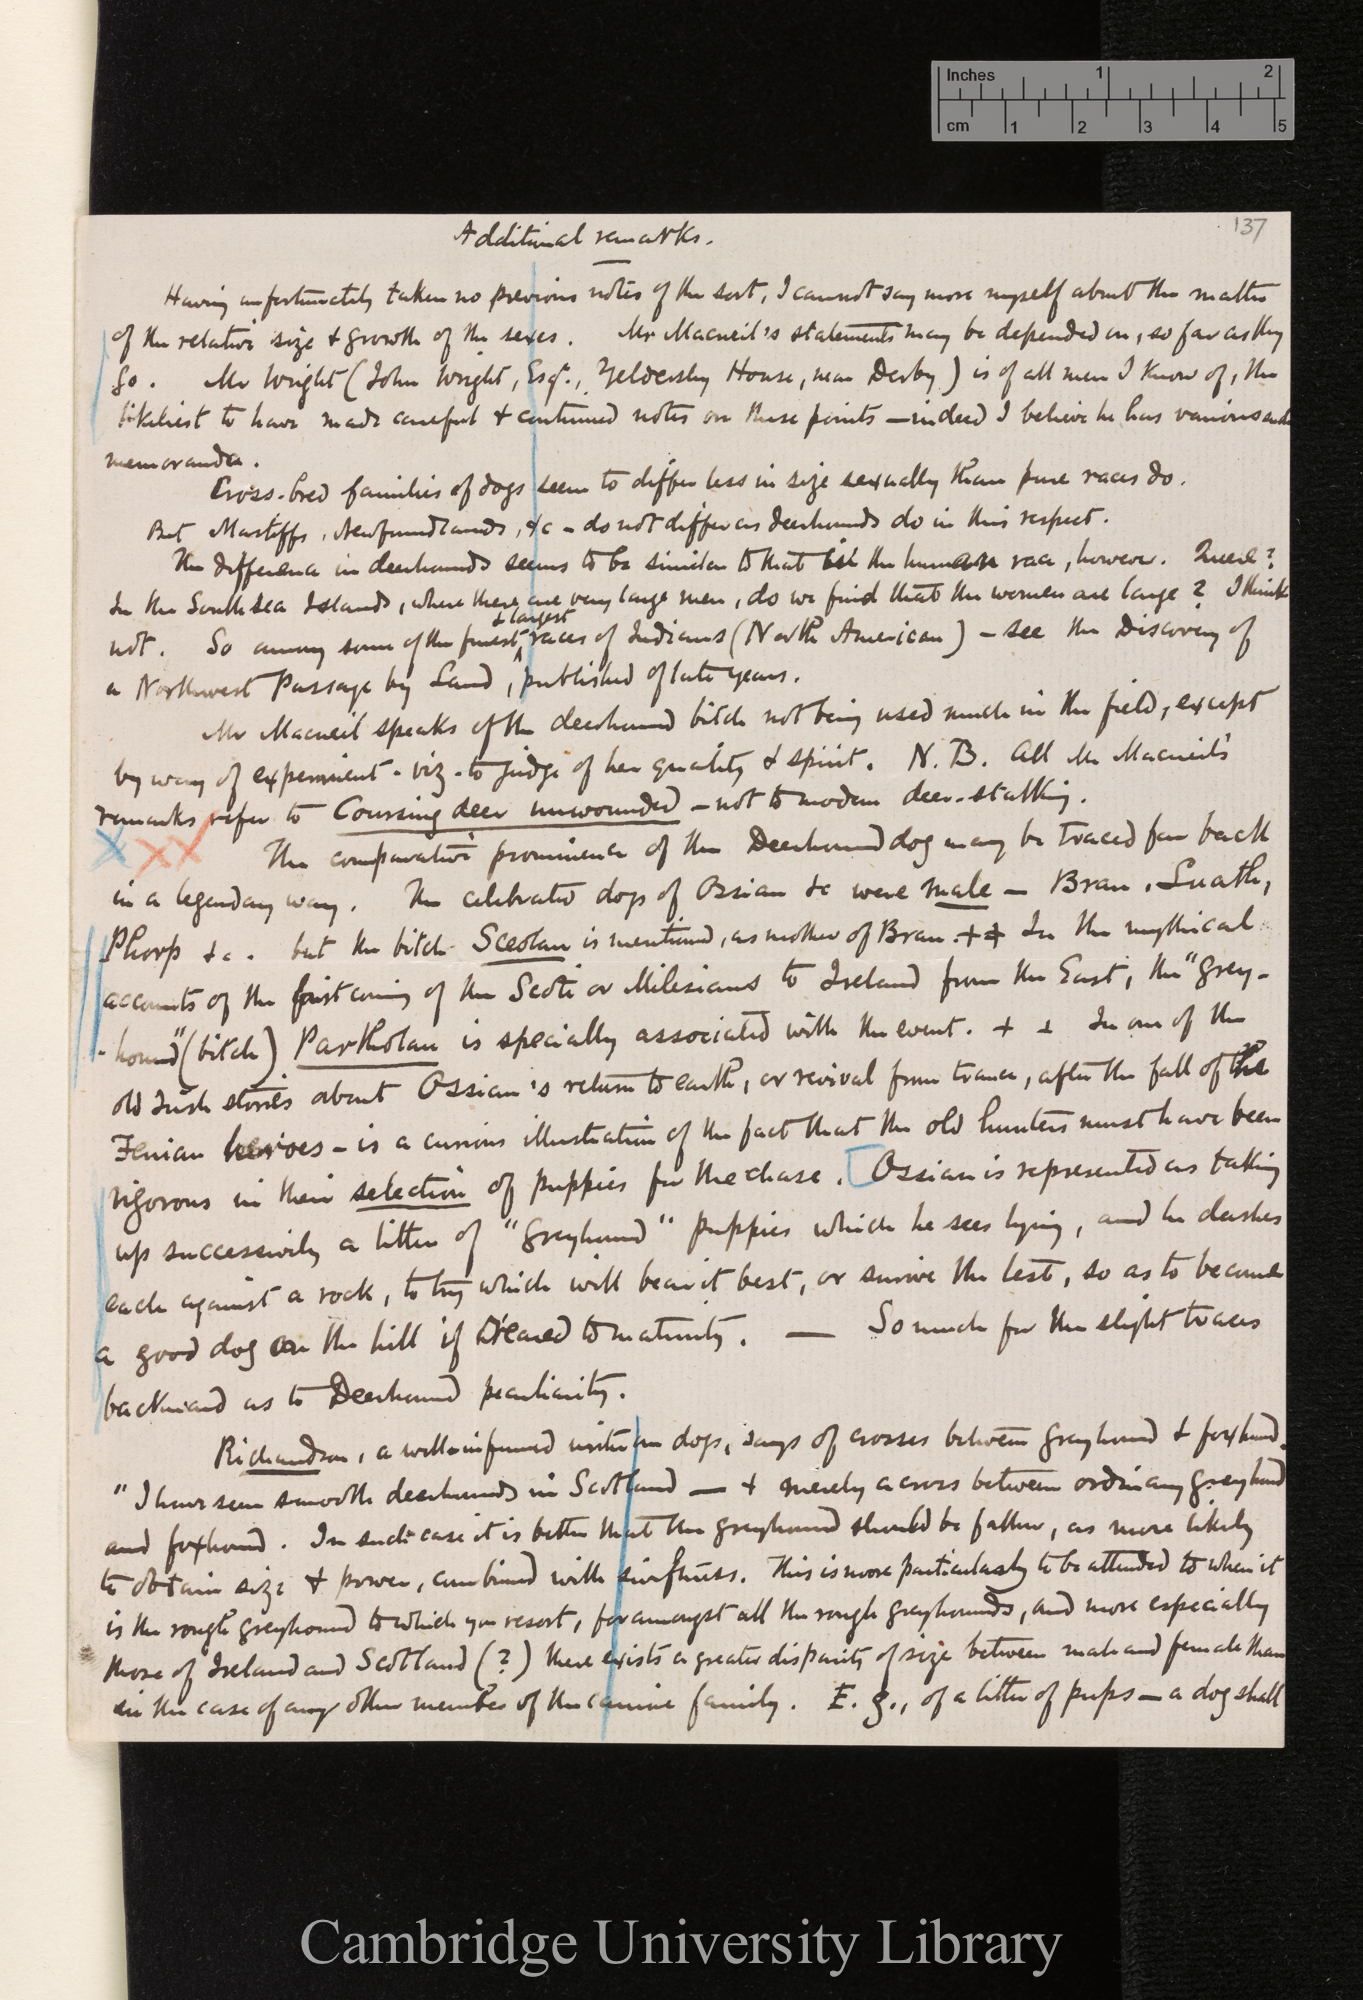 Inches 1 2
cm 1 2 3 4 5
137
Additional remarks.
Having unfortunately taken no previous notes of the sort, I cannot say more myself about the matter
of the relative size & growth of the sexes. Mr Macneil's statements may be depended on, so far as they
go. Mr Wright (John Wright, Esqr., Yeldersley House, near Derby) is of all men I know of, the
likeliest to have made careful & continued notes on these points — indeed I believe he has various such
memoranda.
Cross-bred families of dogs seem to differ less in size sexually than pure races do.
But Mastiffs, Newfoundlands, &c – do not differ as deerhounds do in this respect.
The difference in deerhounds seems to be similar to that in the human race, however. Quere?
In the South Sea Islands, where there are very large men, do we find that the women are large? I think
& largest
not. So among some of the finest races of Indians (North American) – see the Discovery of
a Northwest Passage by Land, published of late years.
Mr Macneil speaks of the deerhound bitch not being used much in the field, except
by way of experiment - viz - to judge of her quality & spirit. N.B. All Mr Macneil's
remarks refer to Coursing deer unwounded – not to modern deer-stalking.
X XX The comparative prominence of the Deerhound dog may be traced far back
in a legendary way. The celebrated dogs of Ossian &c were male – Bran, Luath,
Phorp &c. but the bitch Sceolan is mentioned, as mother of Bran. ++ In the mythical
accounts of the first coming of the Scoti or Milesians to Ireland from the East, the "grey-
-hound" (bitch) Partholan is specially associated with the event. + + In one of the
old Irish stories about Ossian's return to earth, or revival from trance, after the fall of the
Fenian heroes – is a curious illustration of the fact that the old hunters must have been
rigorous in their selection of puppies for the chase. [Ossian is represented as taking
up successively a litter of "greyhound" puppies which he sees lying, and he dashes
each against a rock, to try which will bear it best, or survive the test, so as to become
a good dog on the hill if reared to maturity. — So much for the slight traces
backward as to Deerhound peculiarity.
Richardson, a well-informed writer on dogs, says of crosses between greyhound & foxhound.
"I have seen smooth deerhounds in Scotland — & merely a cross between ordinary greyhound
and foxhound. In such case it is better that the greyhound should be father, as more likely
to obtain size & power, combined with swiftness. This is more particularly to be attended to when it
is the rough greyhound to which you resort, for amongst all the rough greyhounds, and more especially
those of Ireland and Scotland (?) there exists a greater disparity of size between male and female than
in the case of any other member of the canine family. E.g., of a litter of pups – a dog shall
Cambridge University Library